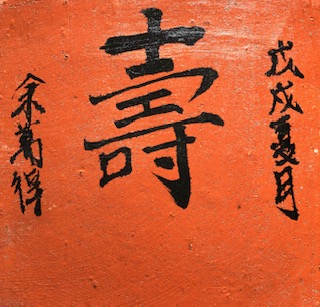 戊戌夏月
壽
余萬得